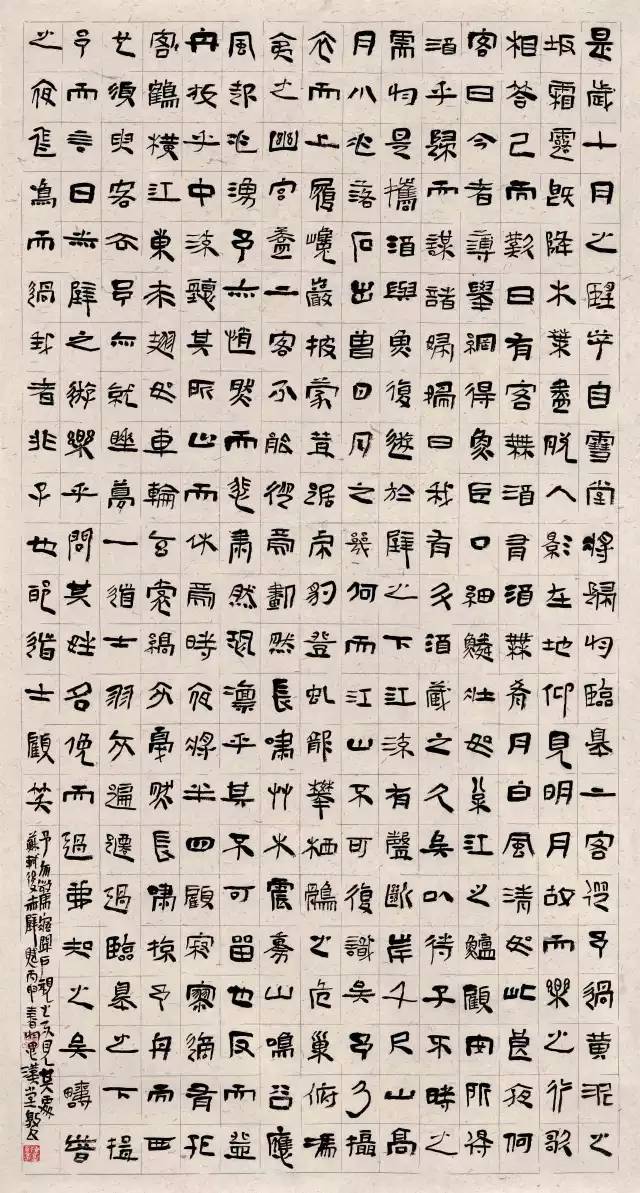 是歲十月之望步自雪堂將歸于臨皋二客從予過黃泥之
坂霜露既降木葉盡脫人影在地仰見明月故而樂之行歌
相答已而歎曰有客無酒有酒無肴月白風清如此良夜何
客曰今者薄舉網得魚巨口細鱗狀如松江之鱸顧安所得
酒乎歸而謀諸婦婦曰我有斗酒藏之久矣以待子不時之
需于是攜酒與魚復遊於壁之下江流有聲斷岸千尺山高
月小水落石出曾日月之幾何而江山不可復識矣予乃攝
衣而上履巉巖披蒙茸踞虎豹登虯龍攀栖鶻之危巢俯馮
夷之幽宮蓋二客不能從焉劃然長嘯艸木震動山鳴谷應
風起水湧予亦悄然而悲肅然恐凜乎其不可留也反而登
舟放乎中流聽其所止而休焉時夜將半四顧寂寥適有孤
客鶴橫江東來翅如車輪玄裳縞衣戛然長嘯掠予舟而西
也須臾客去予亦就睡夢一道士羽衣蹁躚過臨皋之下揖
予而言曰赤壁之遊樂乎問其姓名俛而知之矣疇昔
之夜飛鳴而過我者非子也邪道士顧笑
予亦驚寤開戶視之不見其處
蘇軾後赤壁賦丙申春漢堂